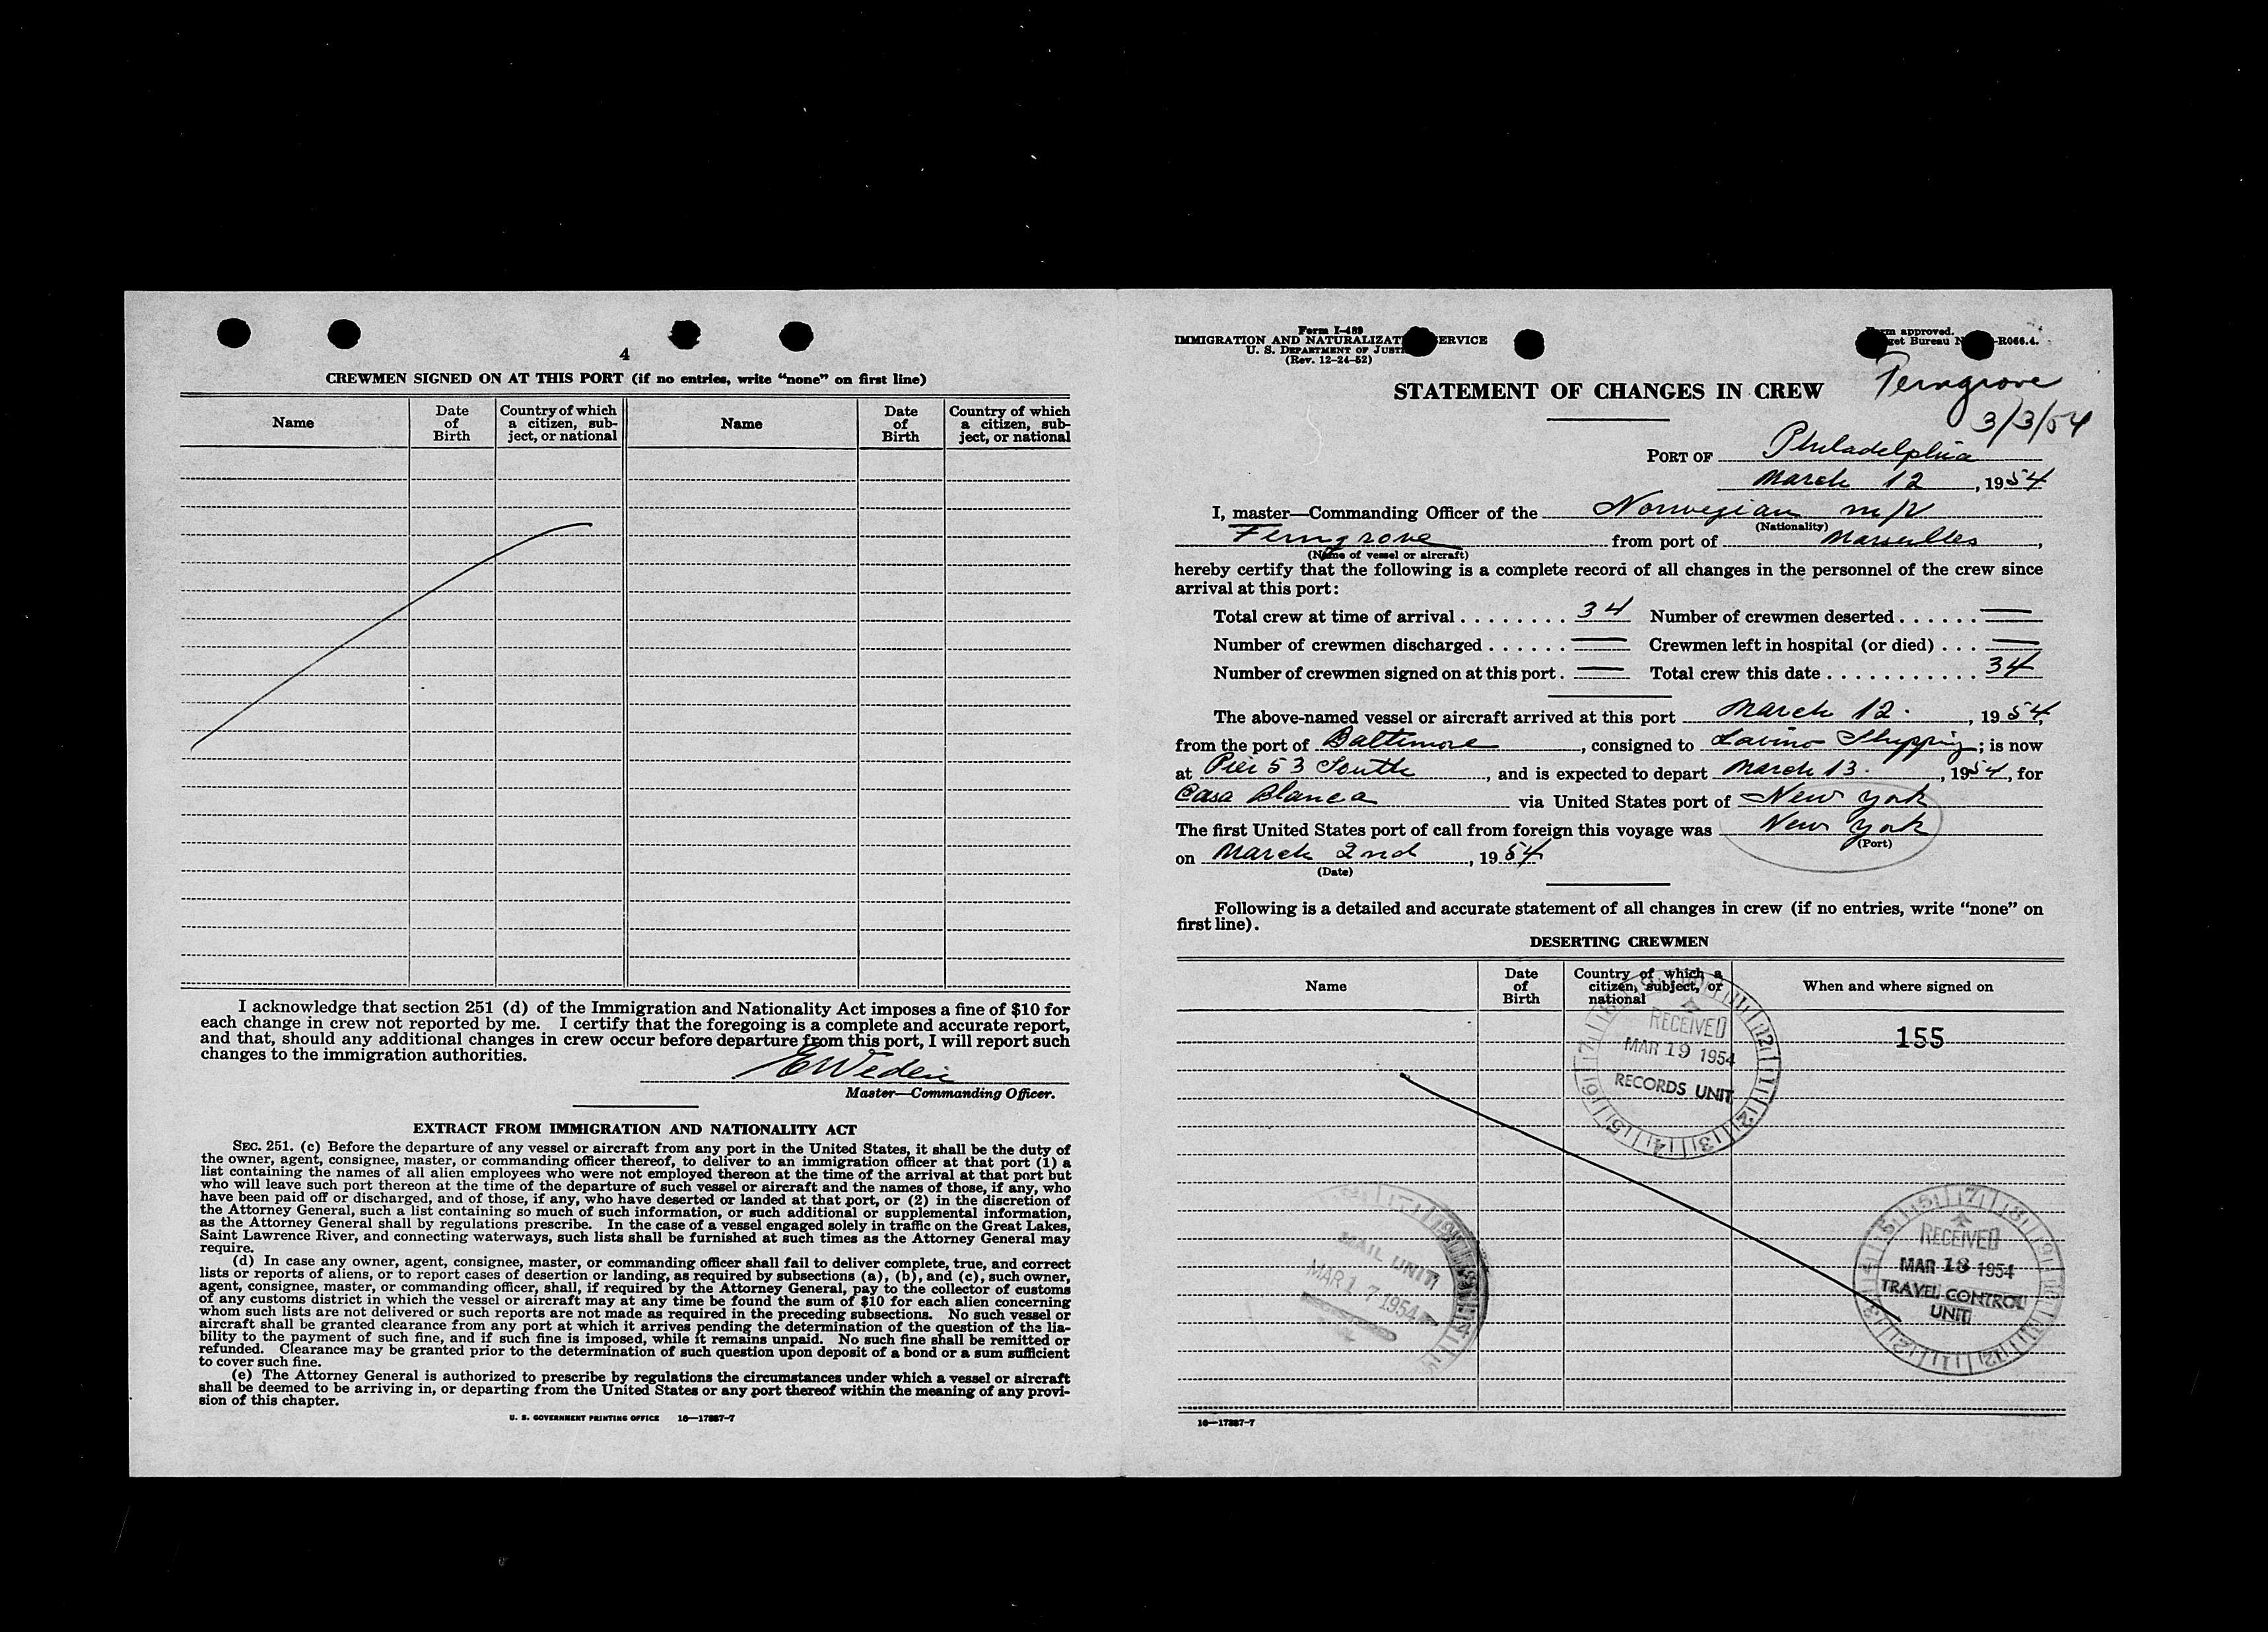 4
CREWMEN SIGNED ON AT THIS PORT (if no entries, write “none” on first line)
Name
Date of Birth
Country of which a citizen, subject, or national
Name
Date of Birth
Country of which a citizen, subject, or national
I acknowledge that section 251 (d) of the Immigration and Nationality Act imposes a fine of $10 for
each change in crew not reported by me. I certify that the foregoing is a complete and accurate report,
and that, should any additional changes in crew occur before departure from this port, I will report such
changes to the immigration authorities.
Master—Commanding Officer.
EXTRACT FROM IMMIGRATION AND NATIONALITY ACT
SEC. 251. (c) Before the departure of any vessel or aircraft from any port in the United States, it shall be the duty of
the owner, agent, consignee, master, or commanding officer thereof, to deliver to an immigration officer at that port (1) a
list containing the names of all alien employees who were not employed thereon at the time of the arrival at that port but
who will leave such port thereon at the time of the departure of such vessel or aircraft and the names of those, if any, who
have been paid off or discharged, and of those, if any, who have deserted or landed at that port, or (2) in the discretion of
the Attorney General, such a list containing so much of such information, or such additional or supplemental information,
as the Attorney General shall by regulations prescribe. In the case of a vessel engaged solely in traffic on the Great Lakes,
Saint Lawrence River, and connecting waterways, such lists shall be furnished at such times as the Attorney General may
require.
(d) In case any owner, agent, consignee, master, or commanding officer shall fail to deliver complete, true, and correct
lists or reports of aliens, or to report cases of desertion or landing, as required by subsections (a), (b), and (c), such owner,
agent, consignee, master, or commanding officer, shall, if required by the Attorney General, pay to the collector of customs
of any customs district in which the vessel or aircraft may at any time be found the sum of $10 for each alien concerning
whom such lists are not delivered or such reports are not made as required in the preceding subsections. No such vessel or
aircraft shall be granted clearance from any port at which it arrives pending the determination of the question of the lia-
bility to the payment of such fine, and if such fine is imposed, while it remains unpaid. No such fine shall be remitted or
refunded. Clearance may be granted prior to the determination of such question upon deposit of a bond or a sum sufficient
to cover such fine.
(e) The Attorney General is authorized to prescribe by regulations the circumstances under which a vessel or aircraft
shall be deemed to be arriving in, or departing from the United States or any port thereof within the meaning of any provi-
sion of this chapter.
U. S. GOVERNMENT PRINTING OFFICE 16—17887-7
Form I-489
IMMIGRATION AND NATURALIZAT ERVICE
U. S. DEPARTMENT OF JUSTI
(Rev. 12-24-52)
m approved.
get Bureau N -R066.4.
STATEMENT OF CHANGES IN CREW
Ferngrove
3/3/54
PORT OF Philadelphia
March 12, 1954
I, master—Commanding Officer of the Norwegian m/v
(Nationality)
Ferngrove from port of Marseilles,
(Name of vessel or aircraft)
hereby certify that the following is a complete record of all changes in the personnel of the crew since
arrival at this port:
Total crew at time of arrival . . . . . . . . 34 Number of crewmen deserted . . . . . . —
Number of crewmen discharged . . . . . . — Crewmen left in hospital (or died) . . . —
Number of crewmen signed on at this port . — Total crew this date . . . . . . . . . . . 34
The above-named vessel or aircraft arrived at this port March 12, 1954,
from the port of Baltimore, consigned to Lavino Shipping; is now
at Pier 53 South, and is expected to depart March 13, 1954, for
Casa Blanca via United States port of New York
The first United States port of call from foreign this voyage was New York
(Port)
on March 2nd, 1954
(Date)
Following is a detailed and accurate statement of all changes in crew (if no entries, write “none” on
first line).
DESERTING CREWMEN
Name
Date of Birth
Country of which a citizen, subject, or national
When and where signed on
155
RECEIVED
MAR 19 1954
RECORDS UNIT
MAIL UNIT
MAR 17 1954
RECEIVED
MAR 18 1954
TRAVEL CONTROL
UNIT
16—17887-7